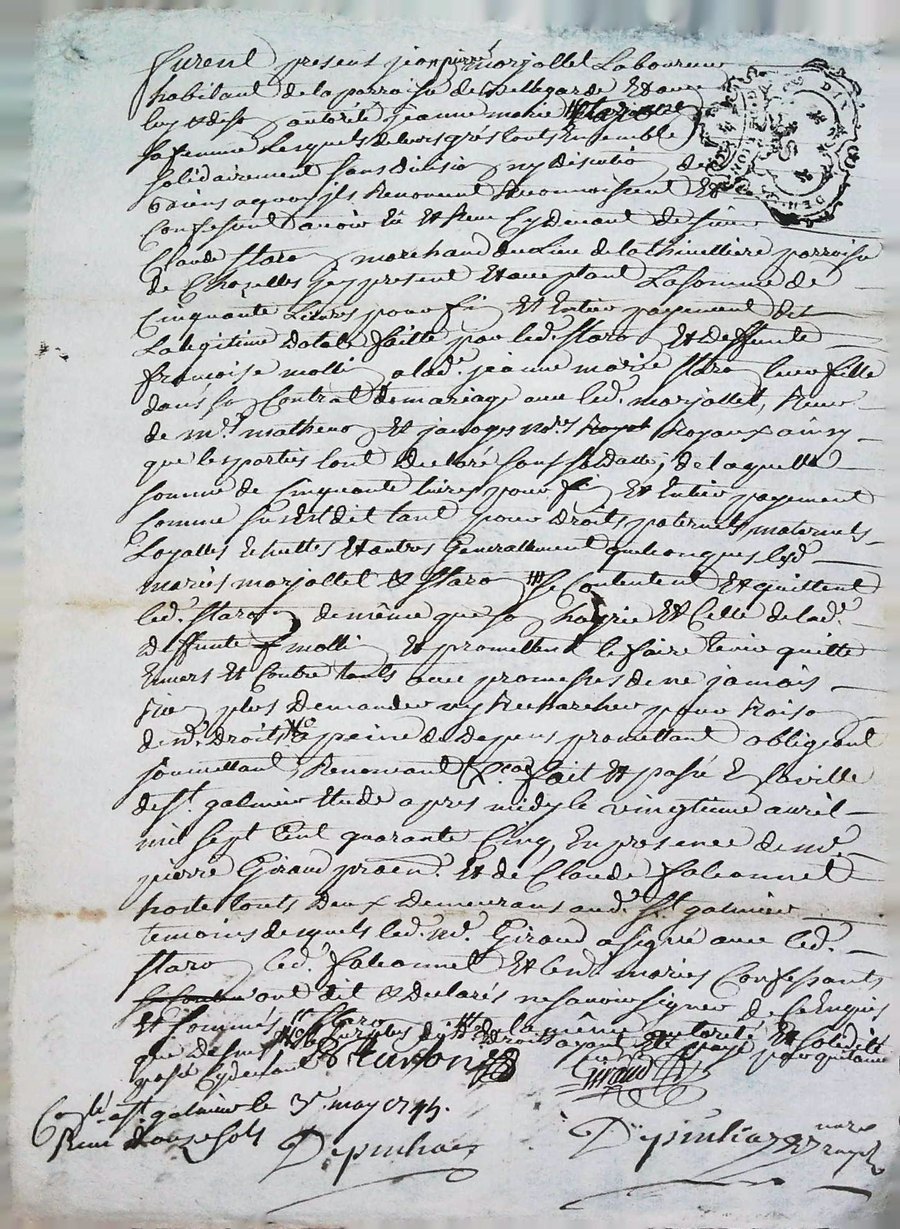 furent present jean pierre marjollet Laboureur
habitant de la parroisse de bellegarde Et avec
luy & de son autorité jeanne marie
sa femme Lesquels de leurs grés touts Ensemble
solidairement sans division ny discution de
biens a quoy ils Renoncent Reconnoissent Et
Confessent avoir Eu Et Receu Cy devant de sieur
Claude staro marchand du Lieu de la thinelliere parroisse
de Chazelles Icy present Et acceptant La somme de
Cinquante Livres pour fin Et Entier payement de
La legitime dotale faitte par led. staro Et deffunte
françoise molli a lad. jeanne marie staro leur fille
dans son Contrat de mariage avec led. marjollet, Receu
de me matheuo Et jacoges nores Royaux ainsy
que les parties l'ont Declaré de laquelle
somme de Cinquante livres pour fin Et Entier payement
Comme sus Est dit tant pour Droits paternels maternels
Layattes Echuttes Et autres Generallement quelconques lesd.
mariés marjollet & staro se Contentent Et quittent
led. staro de même que so hoyrie Et Celle de lad.
Deffunte molli Et promettent le faire tenir quitte
Envers Et Contre touts avec promesses de ne jamais
Rien plus Demander ny Rechercher pour Raison
desd. Droits a peine de Depens promettant obligeant
soumettant Renonçant &ca. fait Et passé En la ville
de St. galmier Etude apres midy le vingtieme avril
mil sept Cent quarante Cinq, En presence de me.
pierre Giraud praen. Et de Claude falconnet
hoste touts Deux Demeurans aud. St. galmier
temoins desquels led. me. Giraud a signé avec led.
staro led. falconnet Et lesd. mariés Confessants
ont dit & declarés ne savoir signer De Ce Enquis
Et sommés staro la même autorité Et solidité
que Dessus surplus Droits ayant Eté payé pour quitance
passé Cy devant Staron Giraud
Conlé a St galmier le 3e may 1745.
Reçu douze sols Depinhac Depinhac nore
royal